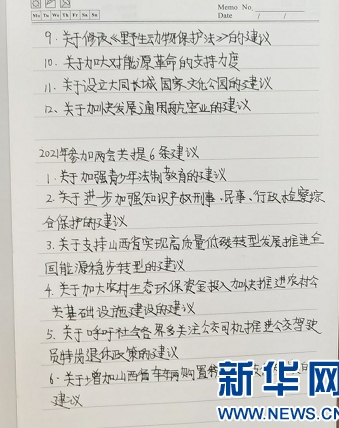 Memo No.
Mo Tu We Th Fr Sa Su
Date / /
9. 关于修改《野生动物保护法》的建议
10. 关于加大对能源革命的支持力度
11. 关于设立大同长城国家文化公园的建议
12. 关于加快发展通用航空业的建议
2021年参加两会共提6条建议
1. 关于加强青少年法制教育的建议
2. 关于进一步加强知识产权刑事、民事、行政检察综
合保护的建议
3. 关于支持山西省实现高质量低碳转型发展推进全
国能源稳步转型的建议
4. 关于加大农村生态环保资金投入加快推进农村公
共基础设施建设的建议
5. 关于呼吁社会各界多关注公交司机推进公交驾驶
员特岗退休政策的建议
6. 关于增加山西省车辆购置税
建议
新华网
WWW.NEWS.CN